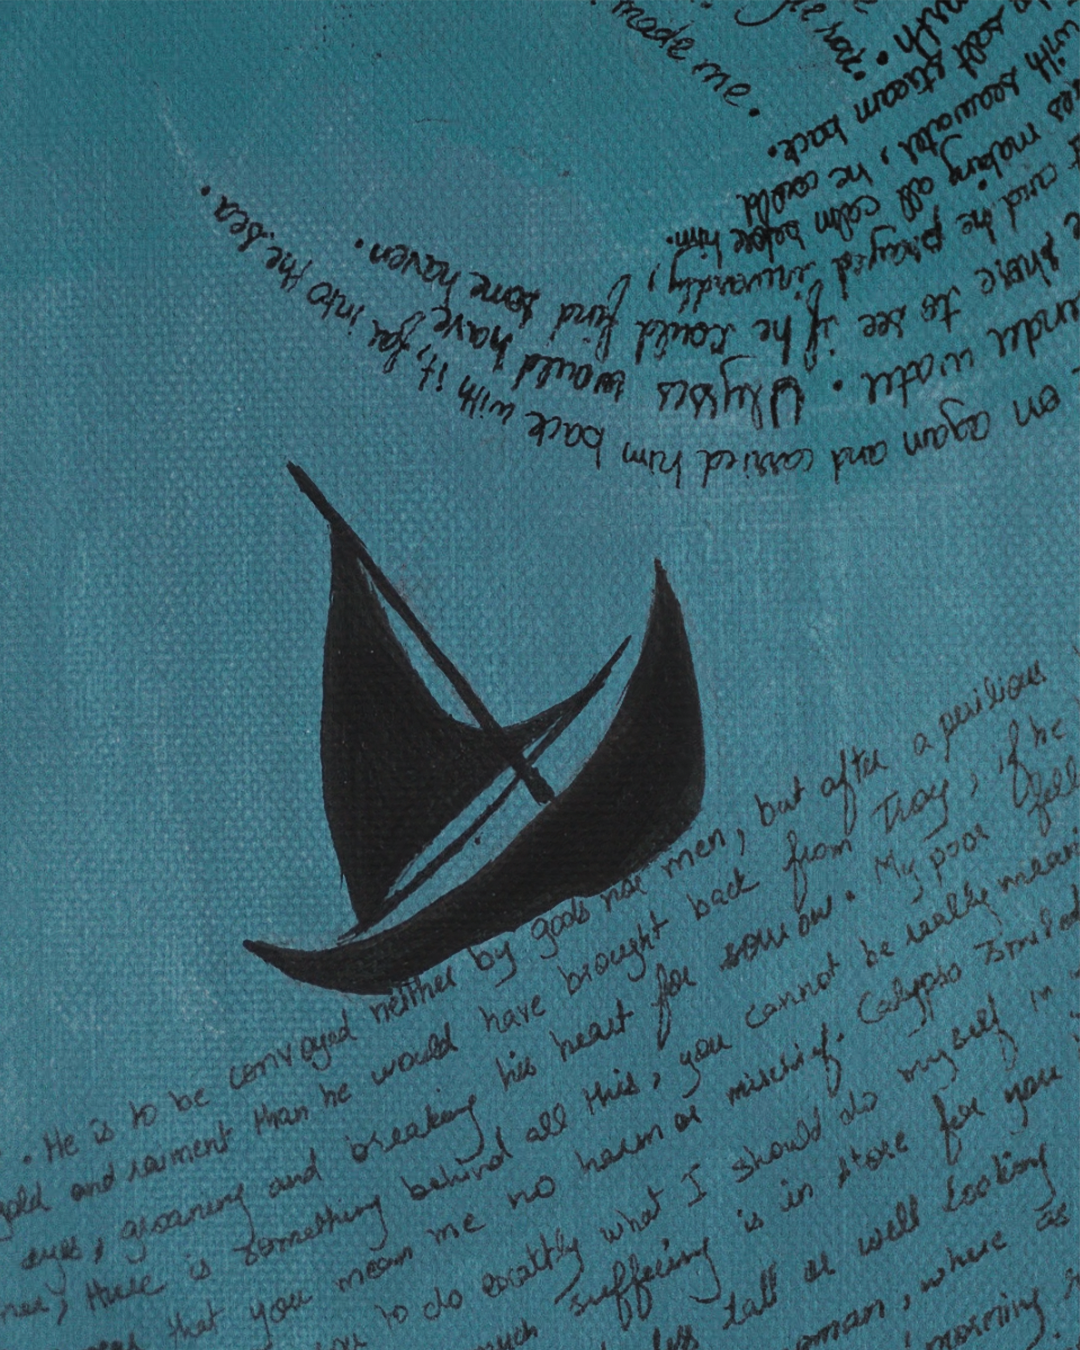 made me.
salt stream back.
with seawater, he could
making all calm before him.
and he prayed inwardly,
shore to see if he could find some haven.
under water. Ulysses would have
on again and carried him back with it, far into the sea.
. He is to be conveyed neither by gods nor men, but after a perilious
gold and raiment than he would have brought back from Troy, if he
eyes, groaning and breaking his heart for sorrow. My poor fell
there is something behind all this, you cannot be really meani
that you mean me no harm or mischief. Calypso smiled
to do exactly what I should do myself in
much suffering is in store for you
less tall or well looking
woman, where as
morning